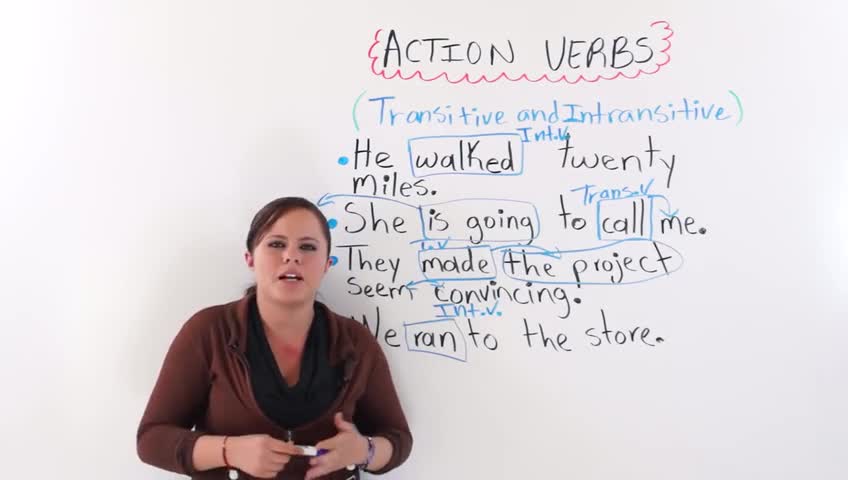 ACTION VERBS
(Transitive and Intransitive)
Int.V.
• He walked twenty
miles.
Trans.V
• She is going to call me.
• They made the project
seem convincing!
Int.V.
We ran to the store.